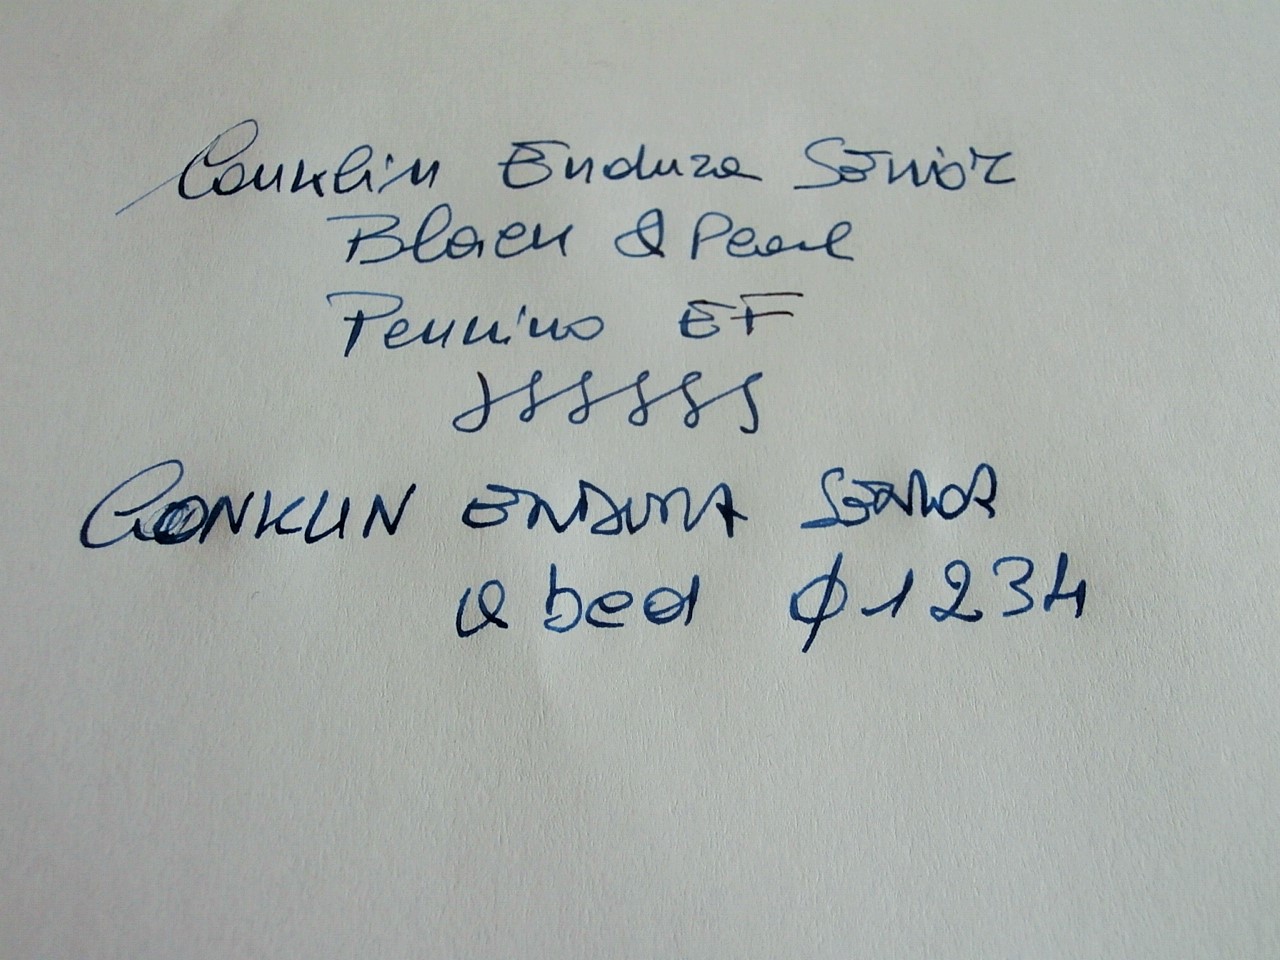 Conklin Endura Senior
Black & Pearl
Pennino EF
CONKLIN ENDURA SENIOR
a bcd Ø1234